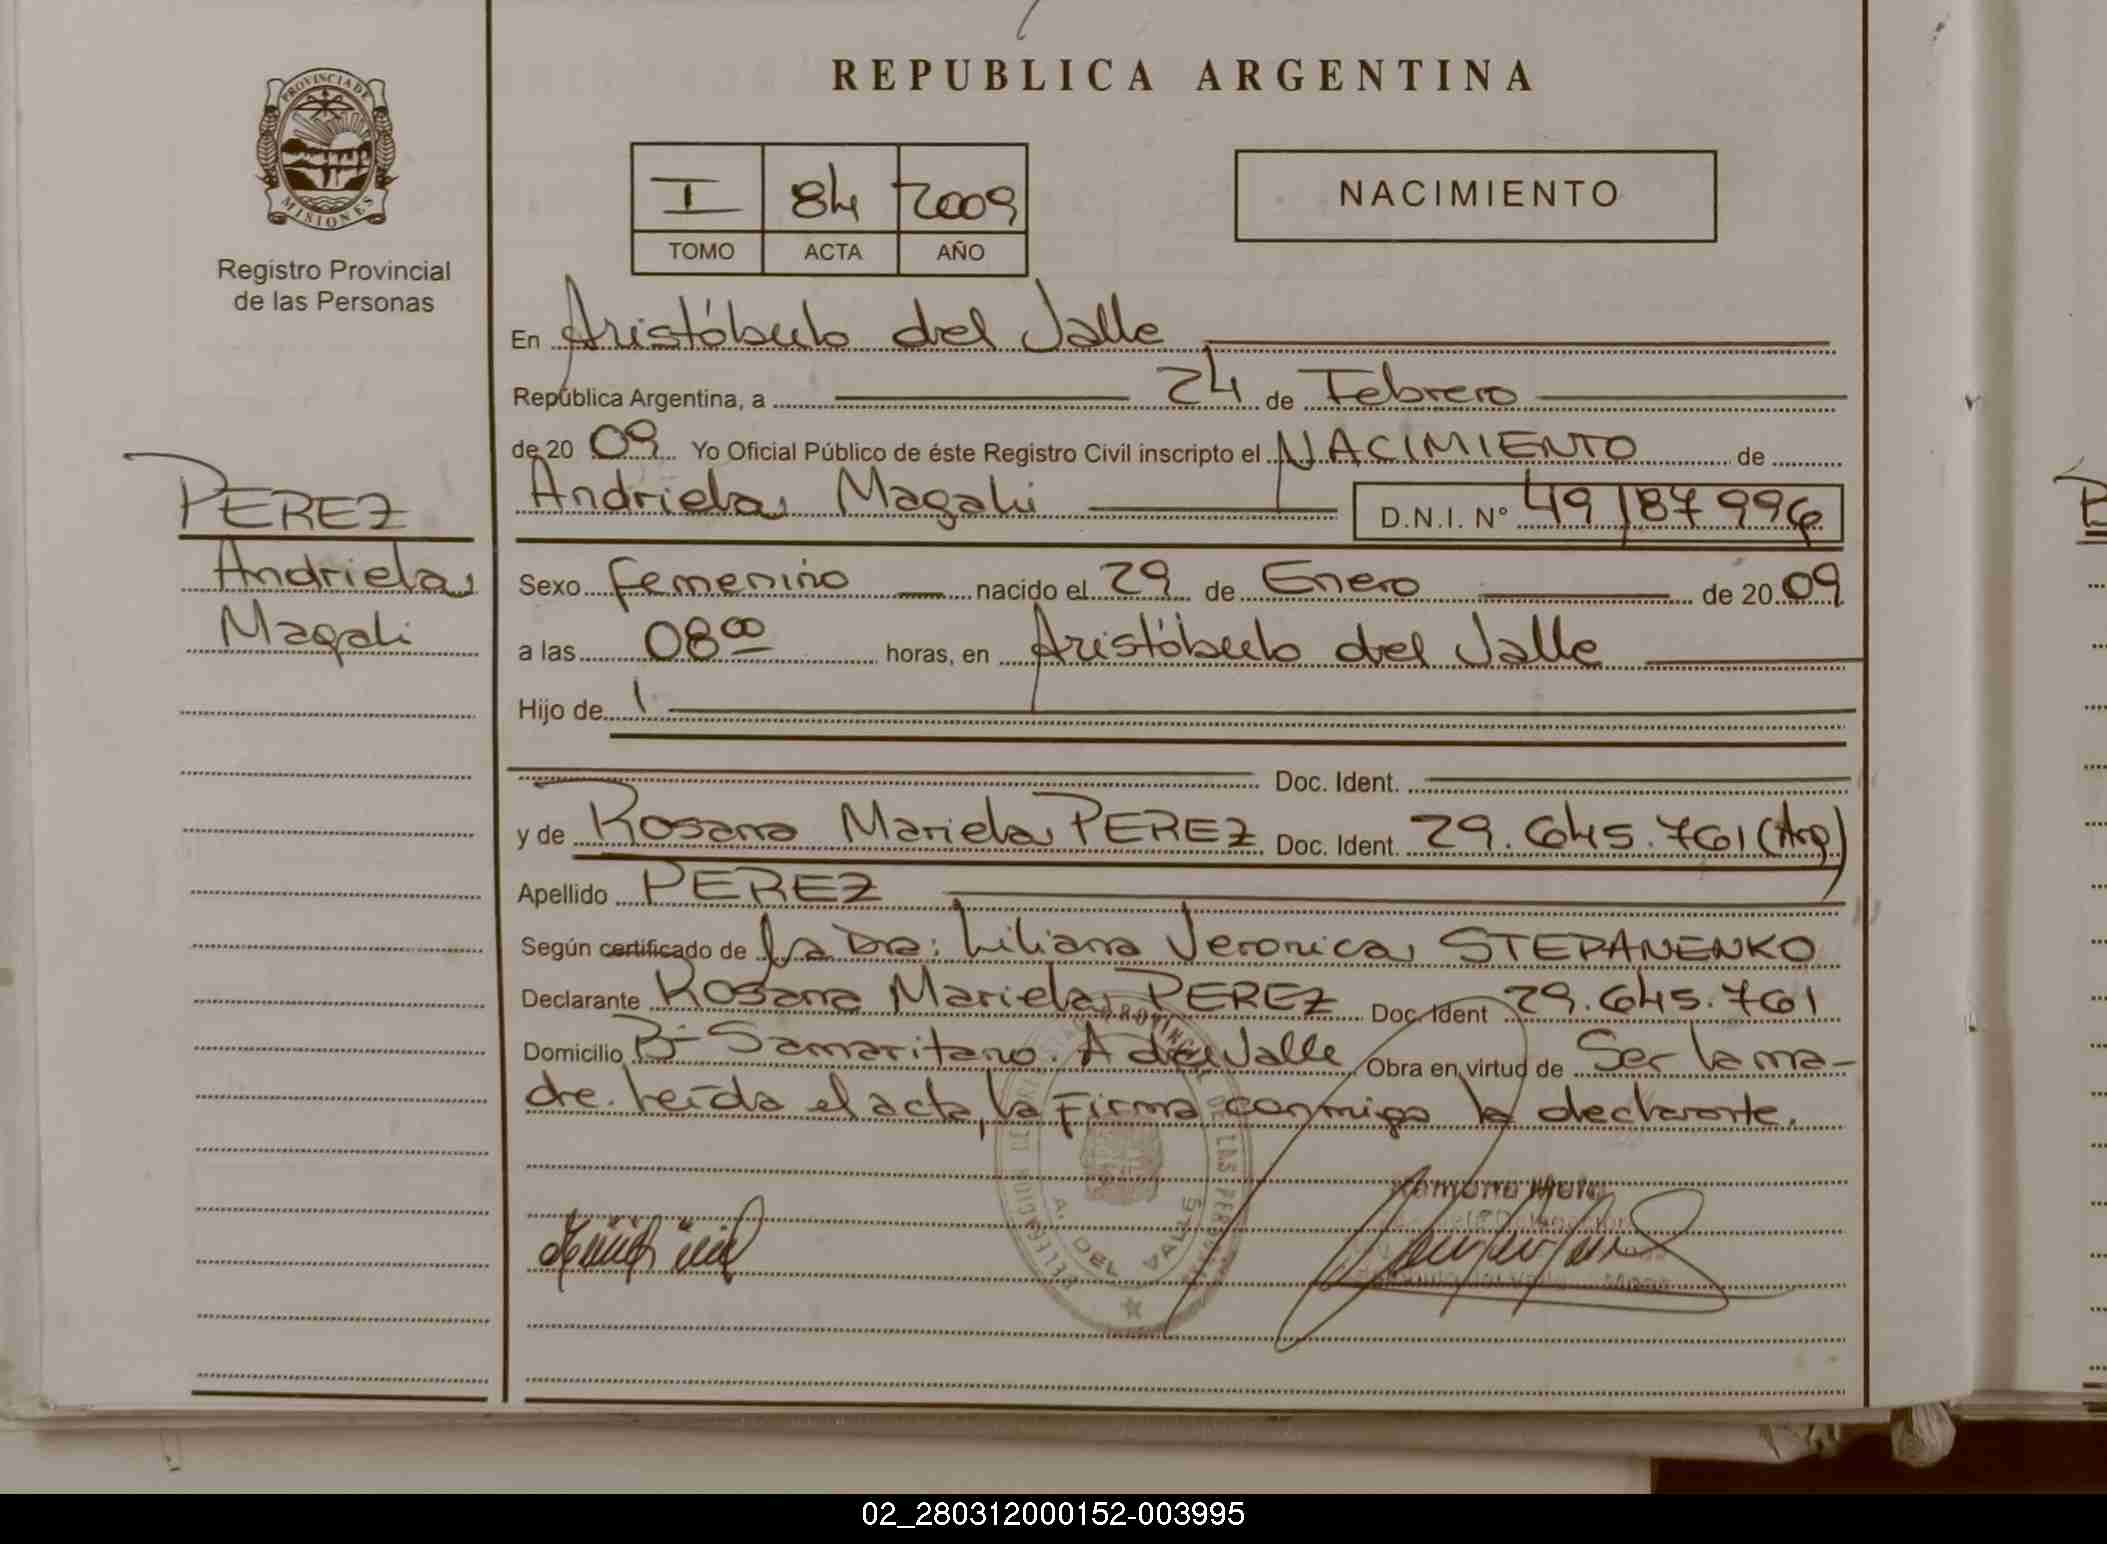 REPUBLICA ARGENTINA
PROVINCIA DE
MISIONES
Registro Provincial
de las Personas
I 84 2009
TOMO ACTA AÑO
NACIMIENTO
En Aristóbulo del Valle
República Argentina, a 24 de Febrero
de 20 09 Yo Oficial Público de éste Registro Civil inscripto el NACIMIENTO de
Andriela Magali D.N.I. Nº 49187996
PEREZ
Andriela
Magali
Sexo femenino nacido el 29 de Enero de 20 09
a las 08 00 horas, en Aristóbulo del Valle
Hijo de
Doc. Ident.
y de Rosana Mariela PEREZ Doc. Ident. 29.645.761 (Arg)
Apellido PEREZ
Según certificado de la Dra: Liliana Veronica STEPANENKO
Declarante Rosana Mariela PEREZ Doc. Ident 29.645.761
Domicilio Bº Samaritano. A del Valle Obra en virtud de Ser la ma-
dre. Leída el acta, la firma conmigo la declarante.
A. DEL VALLE
02_280312000152-003995